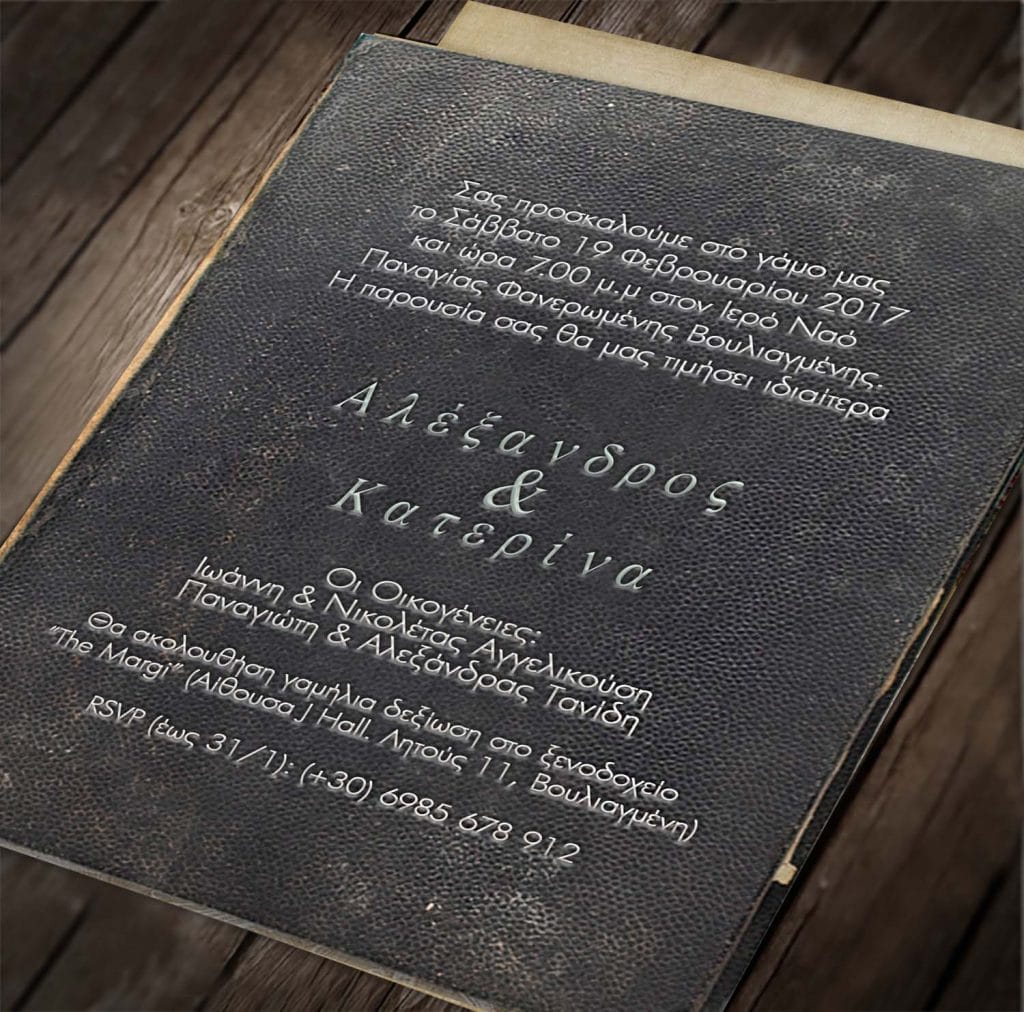 Σας προσκαλούμε στο γάμο μας
το Σάββατο 19 Φεβρουαρίου 2017
και ώρα 7.00 μ.μ στον Ιερό Ναό
Παναγίας Φανερωμένης Βουλιαγμένης.
Η παρουσία σας θα μας τιμήσει ιδιαίτερα
Αλέξανδρος
&
Κατερίνα
Οι Οικογένειες:
Ιωάννη & Νικολέτας Αγγελικούση
Παναγιώτη & Αλεξάνδρας Τανίδη
Θα ακολουθήση γαμήλια δεξίωση στο ξενοδοχείο
"The Margi" (Αίθουσα J Hall, Λητούς 11, Βουλιαγμένη)
RSVP (έως 31/1): (+30) 6985 678 912